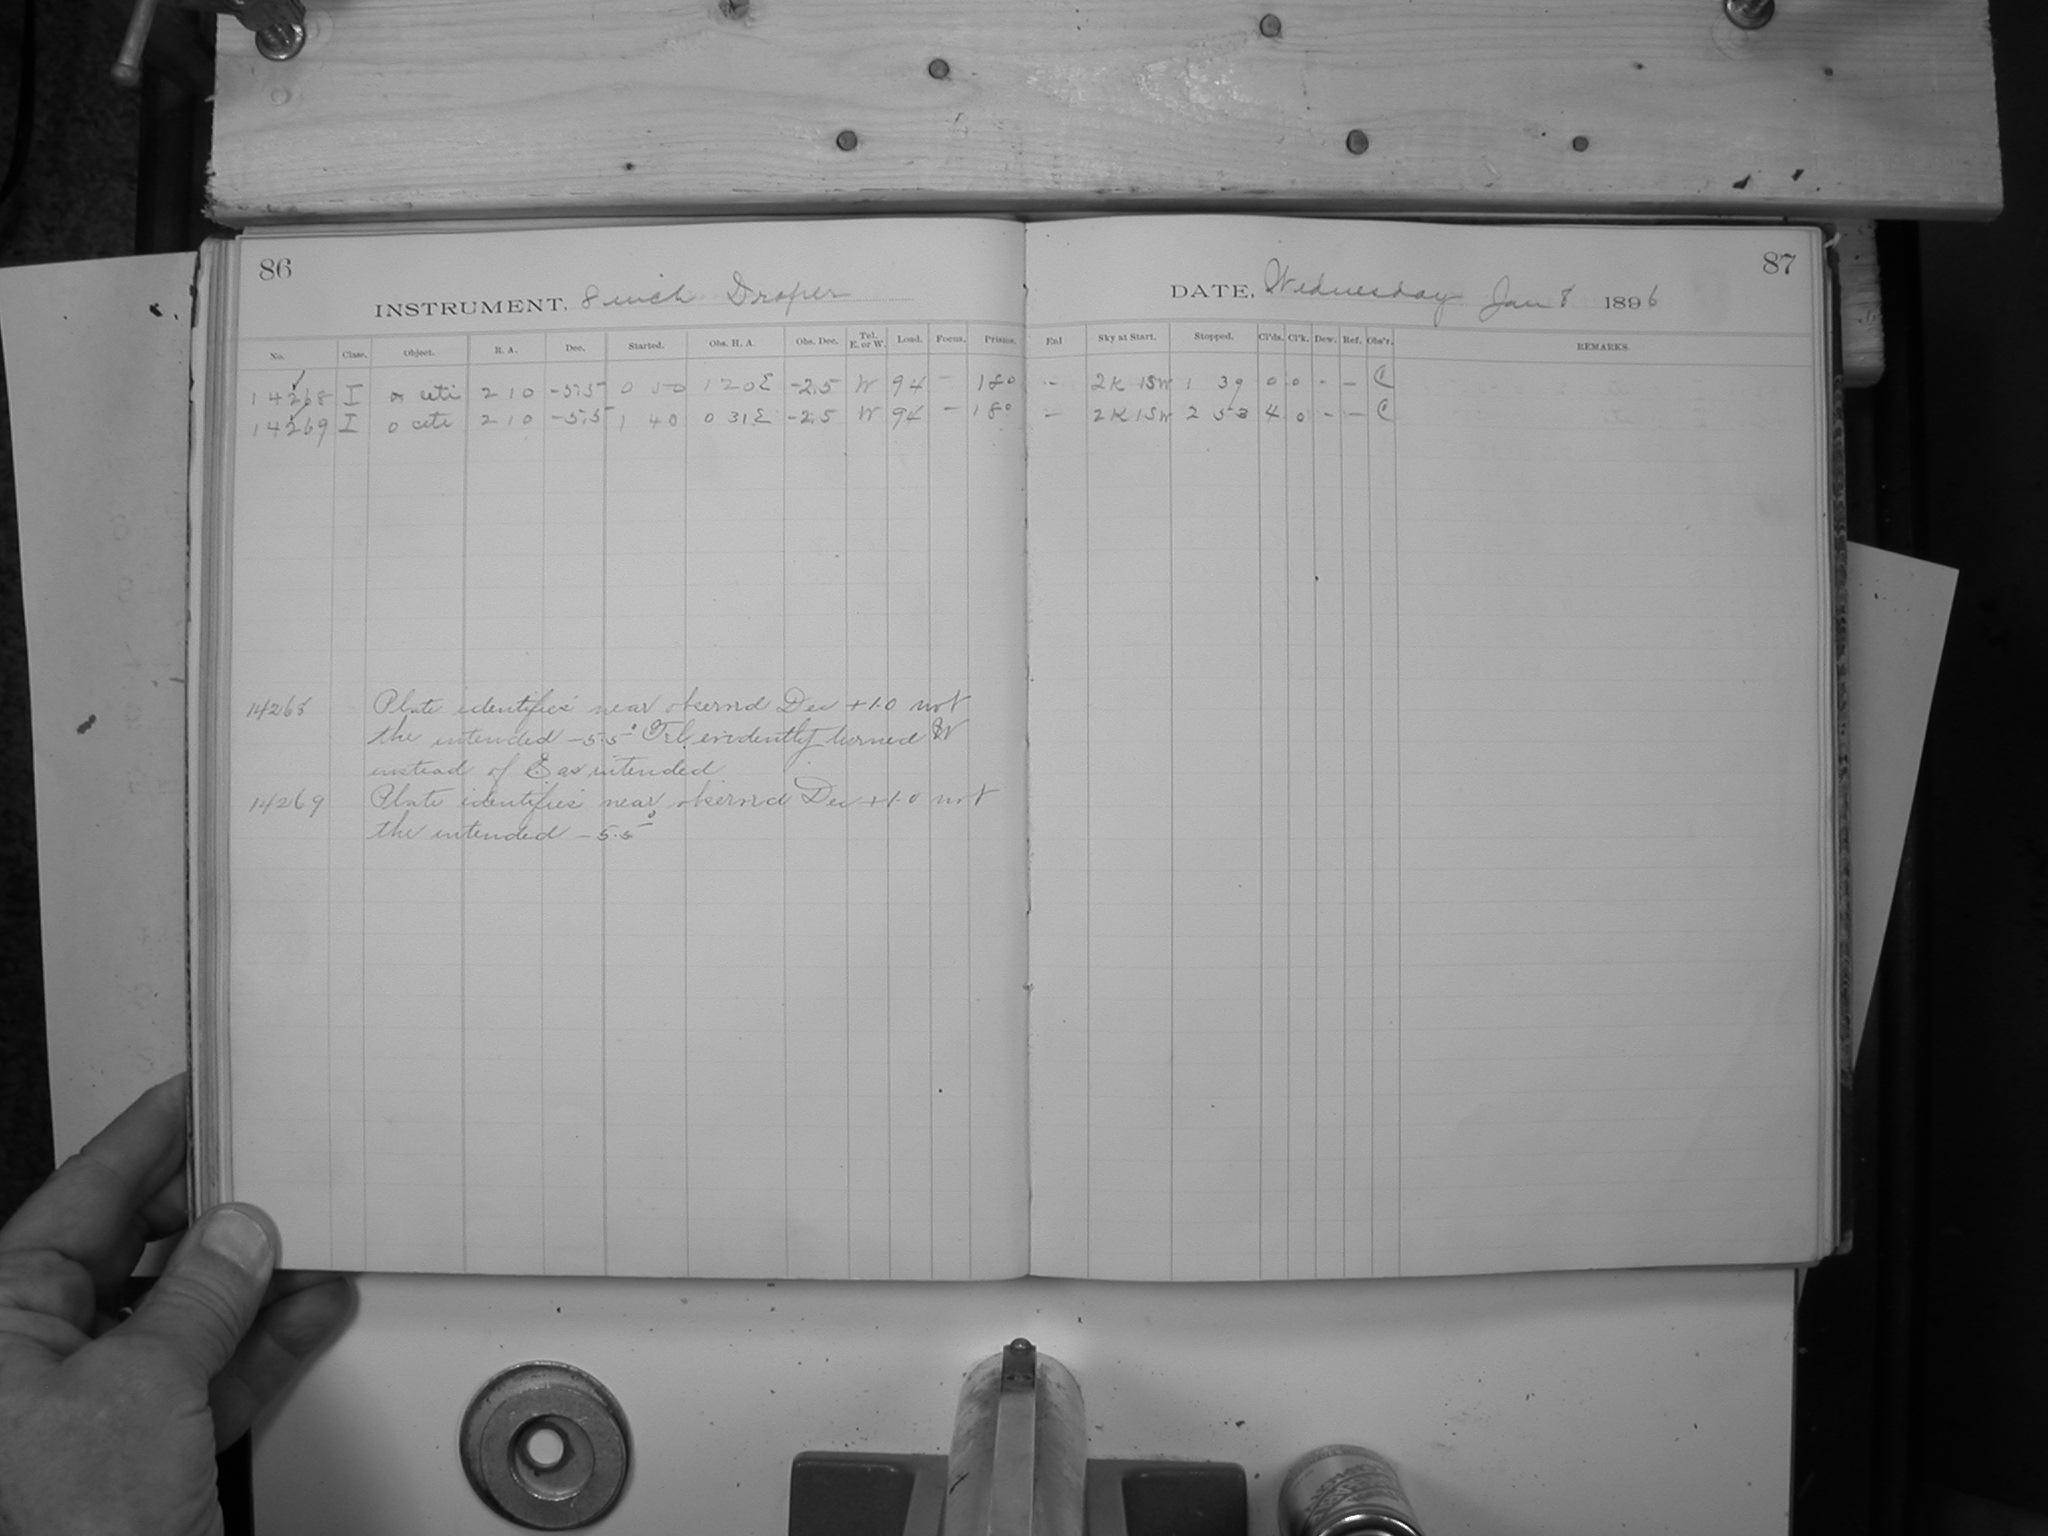 86
INSTRUMENT, 8 inch Draper
No. Class. Object. R. A. Dec. Started. Obs. H. A. Obs. Dec. Tel. E. or W. Load. Focus. Prisms.
14268 I o ceti 2 10 -5.5 0 50 1 20 E -2.5 W 94 - 180
14269 I o ceti 2 10 -5.5 1 40 0 31 E -2.5 W 94 - 180
14268 Plate identifies near observed Dec +1.0 not
the intended -5.5° Tel. evidently turned W
instead of E as intended
14269 Plate identifies near observed Dec +1.0 not
the intended -5.5°
87
DATE, Wednesday Jan 8 1896
Enl Sky at Start. Stopped. Cl'ds. Cl'k. Dew. Ref. Obs'r. REMARKS.
- 2K 1SW 1 39 0 0 - - C
- 2K 1SW 2 53 4 0 - - C